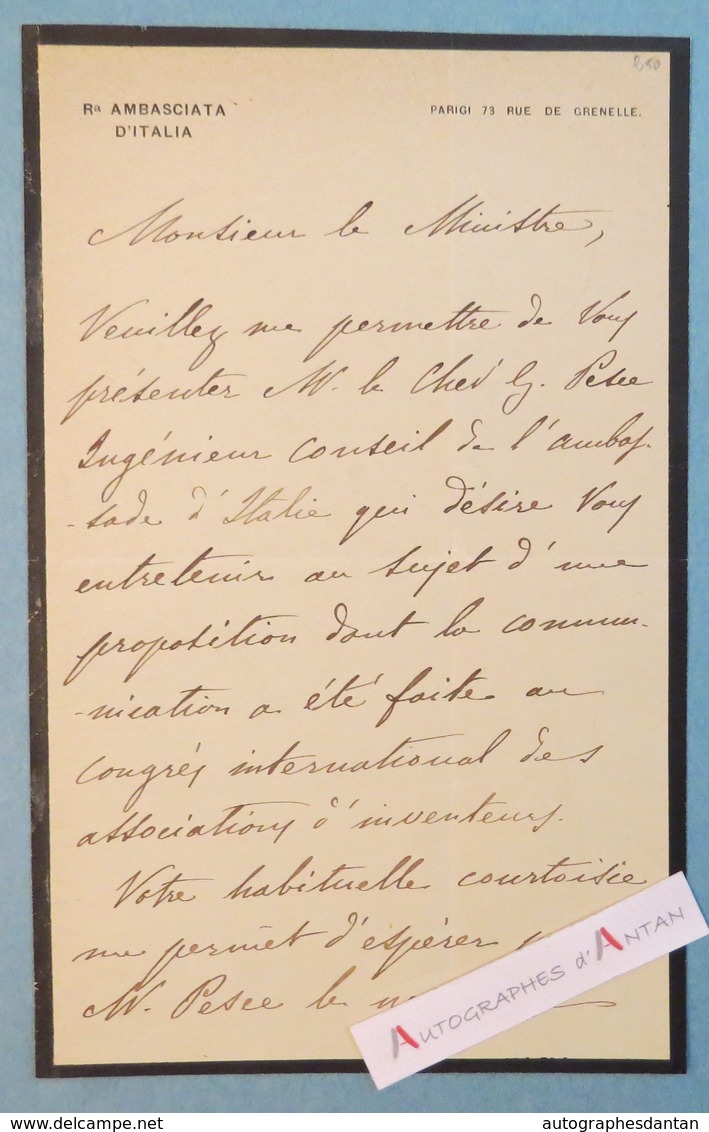 R,50
Rª AMBASCIATA
D'ITALIA
PARIGI 73 RUE DE GRENELLE.
Monsieur le Ministre,
Veuillez me permettre de Vous
présenter M. le Chevr G. Pesce
Ingénieur Conseil de l'ambas-
-sade d'Italie qui désire Vous
entretenir au sujet d'une
proposition dont la commu-
-nication a été faite au
Congrès international des
associations d'inventeurs.
Votre habituelle courtoisie
me permet d'espérer
M. Pesce le
AUTOGRAPHES d'ANTAN
www.delcampe.net
autographesdantan